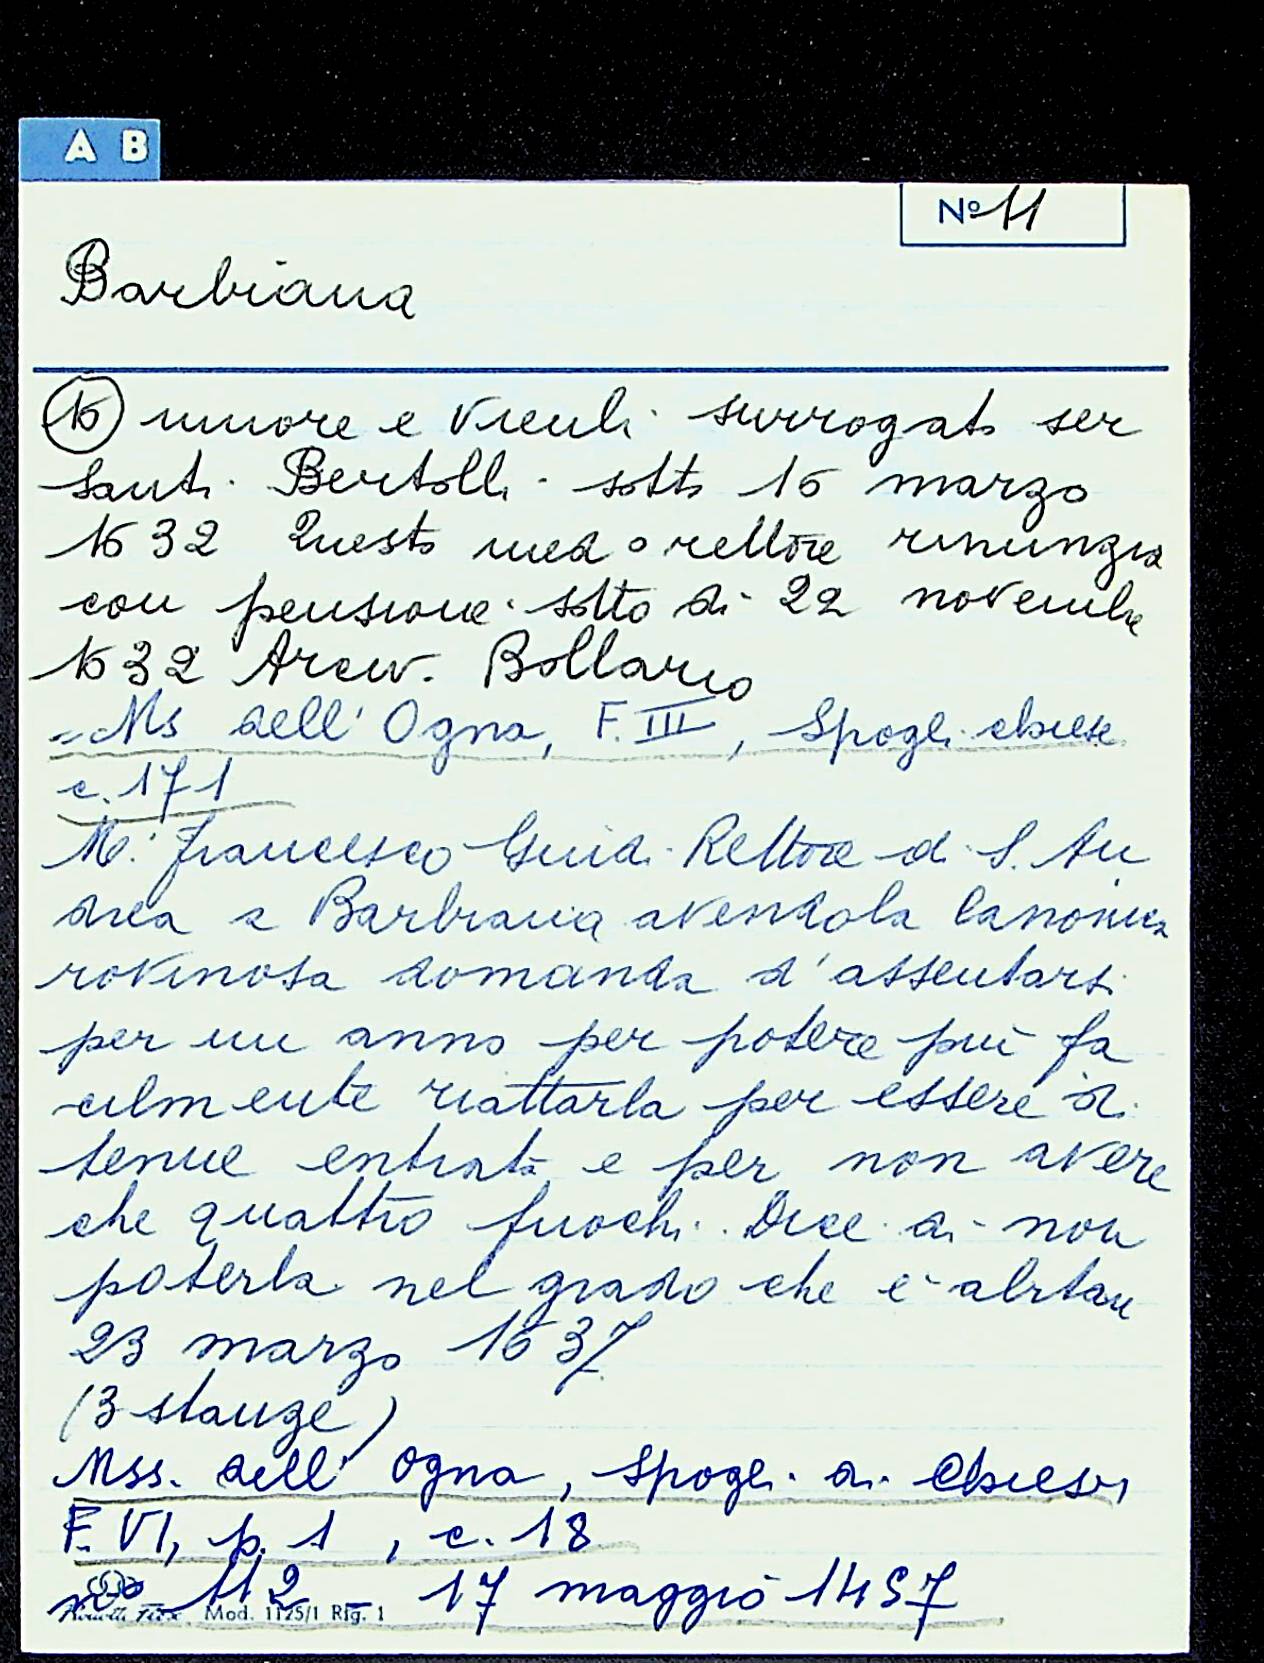 A B
Nº 11
Barbiana
16 muore e vien li surrogato ser
Santi Bertolli sotto 16 marzo
1632 Questo med.o rettore rinunzia
con pensione sotto di 22 novembre
1632 Arciv. Bollario
Ms dell'Ogna, F. III, Spogli chiese
c. 171
M. Francesco Guidi Rettore di S. An
drea a Barbiana avendola canonica
rovinosa domanda d'assentarsi
per un anno per potere più fa
cilmente riattarla per essere di
tenue entrata e per non avere
che quattro fuochi. Dice di non
poterla nel grado che è abitare
23 marzo 1637
(3 stanze)
Mss. dell'Ogna, Spogli di Chiese,
F. VI, p. 1, c. 18
n° 112 - 17 maggio 1457
Mod. 1125/1 Rig. 1